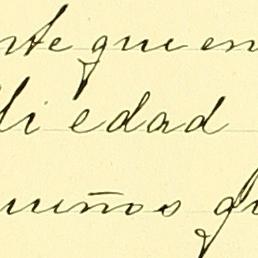 nte que en
li edad
ueños qu